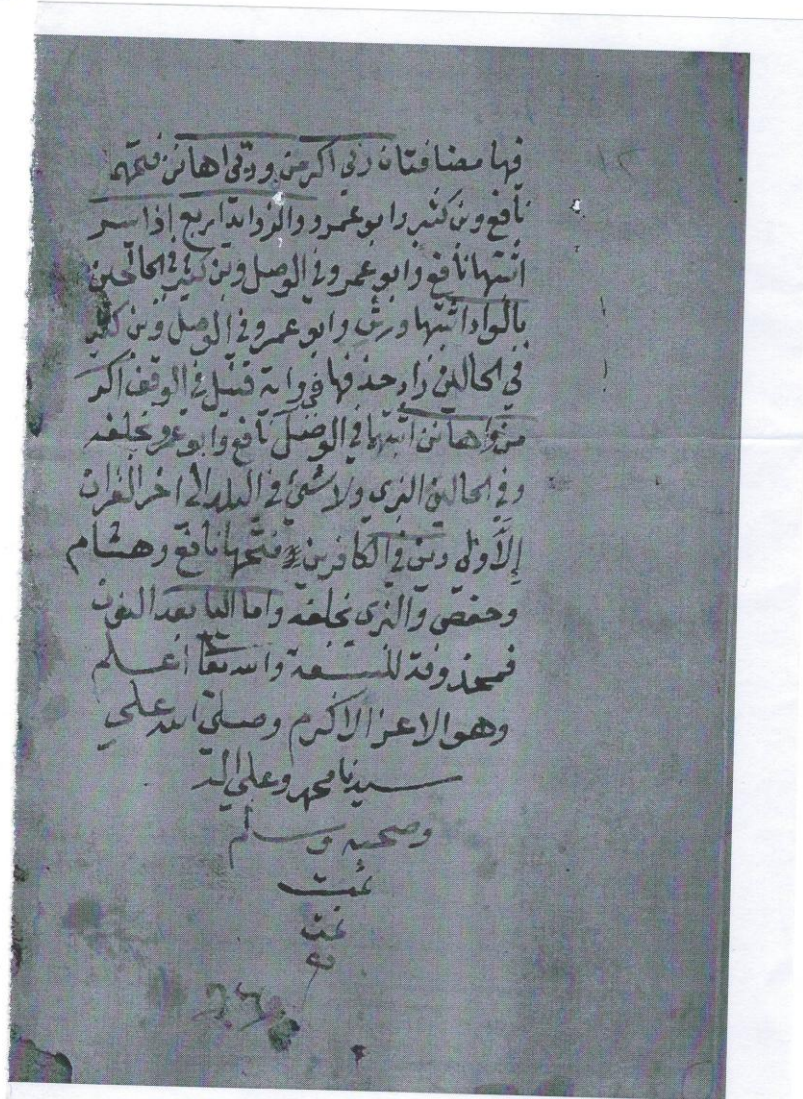 فها مضافتان ربي اكرمن وربي اهانن فتحهما
نافع وبن كثير وابو عمرو والزوائد اربع إذا يسر
اثبتها نافع وابو عمرو في الوصل وبن كثير في الحالين
بالواد اثبتها ورش وابو عمرو في الوصل وبن كثير
في الحالين زاد حذفها في رواية قنبل في الوقف اكر
من واهانن اثبتها في الوصل نافع وابو عمرو بخلفه
وفي الحالين البزي ولا شئ في البلد الى اخر القران
إلا ولى دين في الكافرين فتحها نافع وهشام
وحفص والبزي بخلفه واما اليا بعد النون
فمحذوفة للسبعة والله تعا اعلم
وهو الاعز الاكرم وصلى الله على
سيدنا محمد وعلى اله
وصحبه وسلم
تمت
تمت